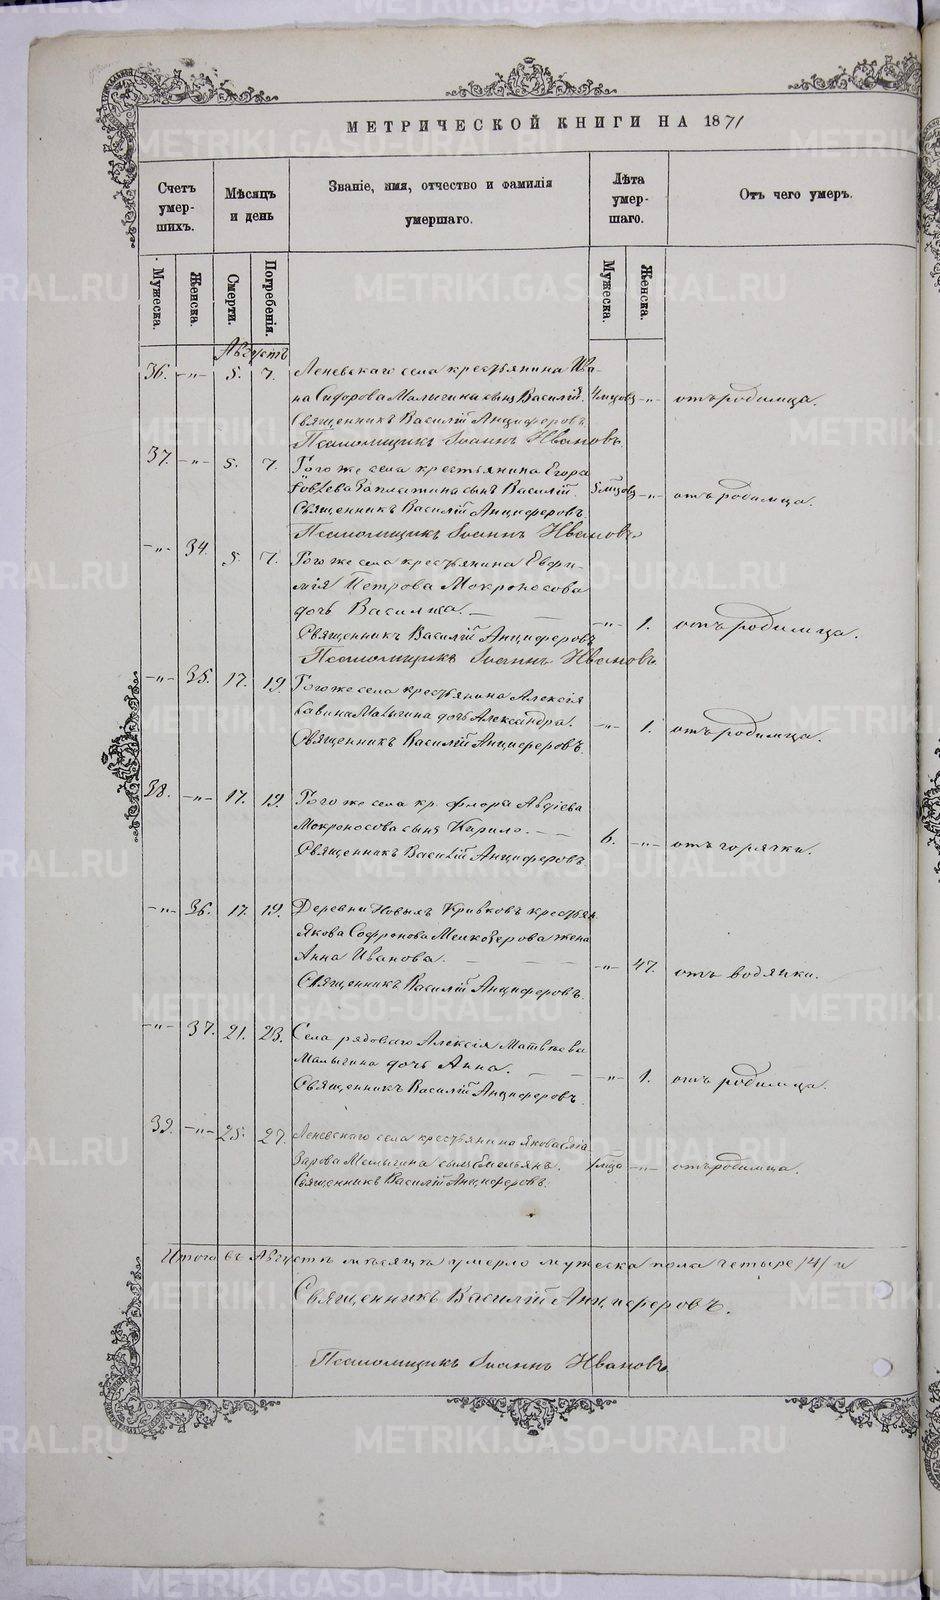 МЕТРИЧЕСКОЙ КНИГИ НА 1871
Счетъ умер- шихъ.
Мѣсяцъ и день
Званіе, имя, отчество и фамилія умершаго.
Лѣта умер- шаго.
Отъ чего умеръ.
Мужеска. Женска. Смерти. Погребенія. Мужеска. Женска.
Августъ
36. —"— 5. 7. Леневскаго села крестьянина Ива-
на Сидорова Малыгина сынъ Василій. 4 мцовъ —"— отъ родимца.
Священникъ Василій Анциферовъ.
Псаломщикъ Іоаннъ Ивановъ
37. —"— 5. 7. Того же села крестьянина Егора
сынъ Василій. 5 мцовъ —"— отъ родимца.
Священникъ Василій Анциферовъ.
Псаломщикъ Іоаннъ Ивановъ
—"— 34. 5. 7. Того же села крестьянина Евфи-
мія Петрова Мокроносова
дочь Василиса. —"— 1. отъ родимца.
Священникъ Василій Анциферовъ
Псаломщикъ Іоаннъ Ивановъ
—"— 35. 17. 19. Того же села крестьянина Алексія
Савина Малыгина дочь Александра. —"— 1. отъ родимца.
Священникъ Василій Анциферовъ.
38. —"— 17. 19. Того же села кр. Флора Авдіева
Мокроносова сынъ Кирило. 6. —"— отъ горячки.
Священникъ Василій Анциферовъ
—"— 36. 17. 19. Деревни Новыхъ Кривковъ крестьян.
Якова Софронова жена
Анна Иванова. —"— 47. отъ водянки.
Священникъ Василій Анциферовъ.
—"— 37. 21. 23. Села рядоваго Алексія Матвѣева
Малыгина дочь Анна. —"— 1. отъ родимца.
Священникъ Василій Анциферовъ.
39. —"— 25. 27. Леневскаго села крестьянина Якова Еліа
зарова Малыгина сынъ Емельянъ. 1 мца —"— отъ родимца.
Священникъ Василій Анциферовъ.
Итого въ Августѣ мѣсяцѣ умерло мужеска пола четыре /4/ и
Священникъ Василій Анциферовъ.
Псаломщикъ Іоаннъ Ивановъ
METRIKI.GASO-URAL.RU